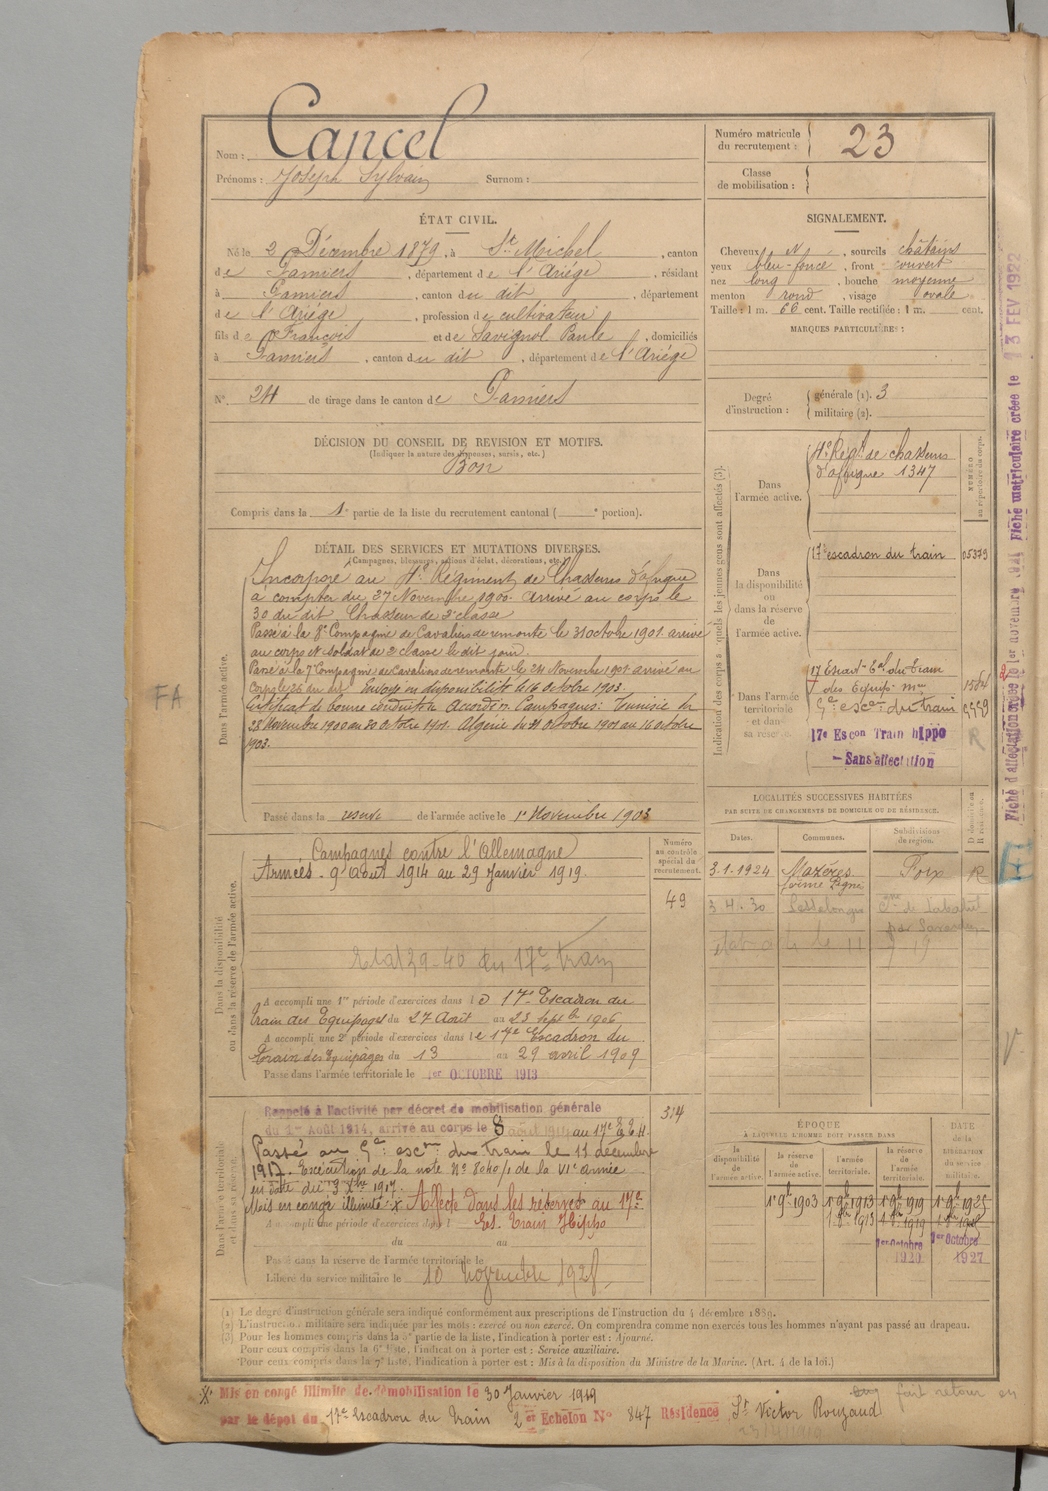 Nom : Cancel
Prénoms : Joseph Sylvain Surnom :
Numéro matricule du recrutement : 23
Classe de mobilisation :
ÉTAT CIVIL.
Né le 2 Décembre 1879, à St Michel, canton
de Pamiers, département de l'Ariége, résidant
à Pamiers, canton du dit, département
de l'Ariége, profession de cultivateur
fils de François et de Savignol Paule, domiciliés
à Pamiers, canton du dit, département de l'Ariége
N° 24 de tirage dans le canton de Pamiers
DÉCISION DU CONSEIL DE REVISION ET MOTIFS.
(Indiquer la nature des dispenses, sursis, etc.)
Bon
Compris dans la 1e partie de la liste du recrutement cantonal ( e portion).
DÉTAIL DES SERVICES ET MUTATIONS DIVERSES.
(Campagnes, blessures, actions d'éclat, décorations, etc.)
Dans l'armée active.
Incorporé au 4e Régiment de Chasseurs d'afrique
à compter du 27 Novembre 1900. arrivé au corps le
30 du dit Chasseur de 2e classe
Passé à la 8e Compagnie de Cavaliers de remonte le 31 octobre 1901 arrivé
au corps et soldat de 2e classe le dit jour.
Passé à la 7e Compagnie de Cavaliers de remonte le 24 Novembre 1901 arrivé au
Corps le 26 du dit Envoyé en disponibilité le 16 octobre 1903.
Certificat de bonne conduite Accordé. Campagnes: Tunisie du
28 Novembre 1900 au 30 octobre 1901. Algérie du 31 octobre 1901 au 16 octobre
1903.
Passé dans la reserve de l'armée active le 1er Novembre 1903
SIGNALEMENT.
Cheveux N, sourcils châtains
yeux bleu-foncé, front couvert
nez long, bouche moyenne
menton rond, visage ovale
Taille : 1 m. 66 cent. Taille rectifiée : 1 m. cent.
MARQUES PARTICULIÈRES :
Degré d'instruction : générale (1). 3
militaire (2).
Indication des corps auxquels les jeunes gens sont affectés (3).
NUMÉRO au répertoire du corps.
Dans l'armée active.
4e Régt de chasseurs
d'afrique 1347
Dans la disponibilité ou dans la réserve de l'armée active.
17e escadron du train 05379
Dans l'armée territoriale et dans sa réserve.
17 Escad. Eal du train
des Equip. Mres 1584
9e escon du train
17e Escon Train hippo R
- Sans affectation
LOCALITÉS SUCCESSIVES HABITÉES
PAR SUITE DE CHANGEMENTS DE DOMICILE OU DE RÉSIDENCE.
Dates. Communes. Subdivisions de région. D domicile ou R résidence.
3.1.1924 Mazéres Foix R
3.4.30
Dans la disponibilité ou dans la réserve de l'armée active.
Campagnes contre l'Allemagne
Armées. 9 août 1914 au 29 Janvier 1919.
Numéro au contrôle spécial du recrutement.
49
Etat 39-40 du 17e train
A accompli une 1re période d'exercices dans le 17e Escadron du
train des Equipages du 27 Août au 23 septbre 1906
A accompli une 2e période d'exercices dans le 17e Escadron du
train des Equipages du 13 au 29 avril 1909
Passé dans l'armée territoriale le 1er OCTOBRE 1913
Dans l'armée territoriale et dans sa réserve.
Rappelé à l'activité par décret de mobilisation générale 314
du 1er Août 1914, arrivé au corps le 8 août 1914 au 17e E.T.H.
Passé au 9e escon du train le 11 décembre
1917. Exécution de la note No 8040/1 de la VIe armée
en date du 3 Xbre 1917.
Mis en congé illimité. X Affecté dans les réserves au 17e
A accompli une période d'exercices dans l Es. Train Hippo
du au
Passé dans la réserve de l'armée territoriale le
Libéré du service militaire le 10 novembre 1928.
ÉPOQUE
À LAQUELLE L'HOMME DOIT PASSER DANS
la disponibilité de l'armée active. la réserve de l'armée active. l'armée territoriale. la réserve de l'armée territoriale. DATE de la LIBÉRATION du service militaire.
1er 9bre 1903 1er 9bre 1913 1er 9bre 1919 1er 9bre 1925
1er 8bre 1913 1er 8bre 1919 1er 8bre 1925
1er Octobre 1920 1er Octobre 1927
(1) Le degré d'instruction générale sera indiqué conformément aux prescriptions de l'instruction du 4 décembre 1889.
(2) L'instruction militaire sera indiquée par les mots : exercé ou non exercé. On comprendra comme non exercés tous les hommes n'ayant pas passé au drapeau.
(3) Pour les hommes compris dans la 5e partie de la liste, l'indication à porter est : Ajourné.
Pour ceux compris dans la 6e liste, l'indication à porter est : Service auxiliaire.
Pour ceux compris dans la 7e liste, l'indication à porter est : Mis à la disposition du Ministre de la Marine. (Art. 4 de la loi.)
X Mis en congé illimité de démobilisation le 30 Janvier 1919
par le dépot du 17e Escadron du Train 2e Echelon No 847 Résidence St Victor Rouzaud
fait retour en
FA
13 FEV 1922